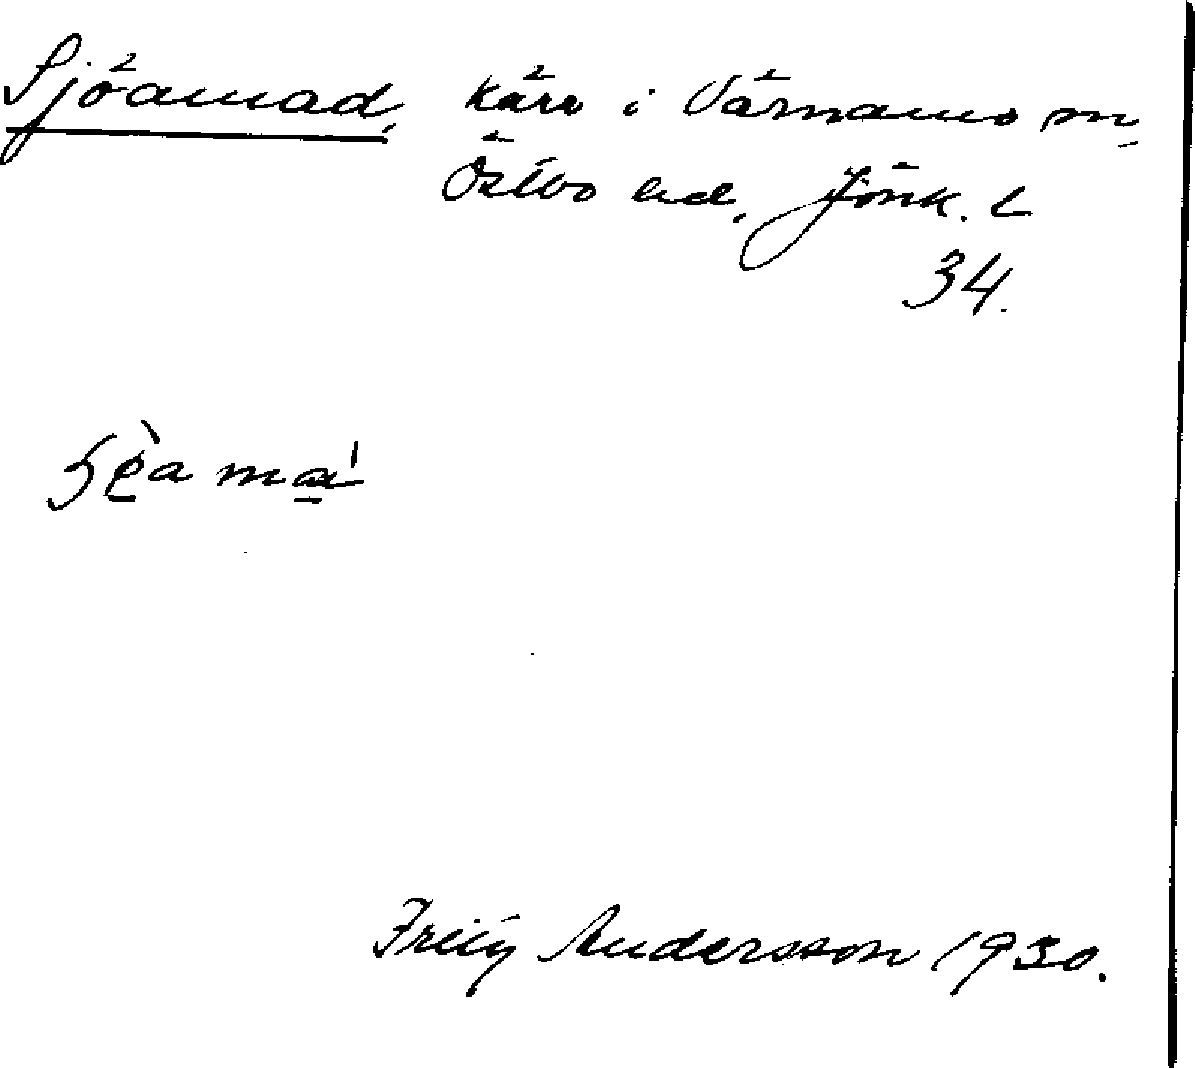 Sjöamad, kärr i Värnamo sn,
Östbo hd, Jönk. L
34.
Fritz Andersson 1930.